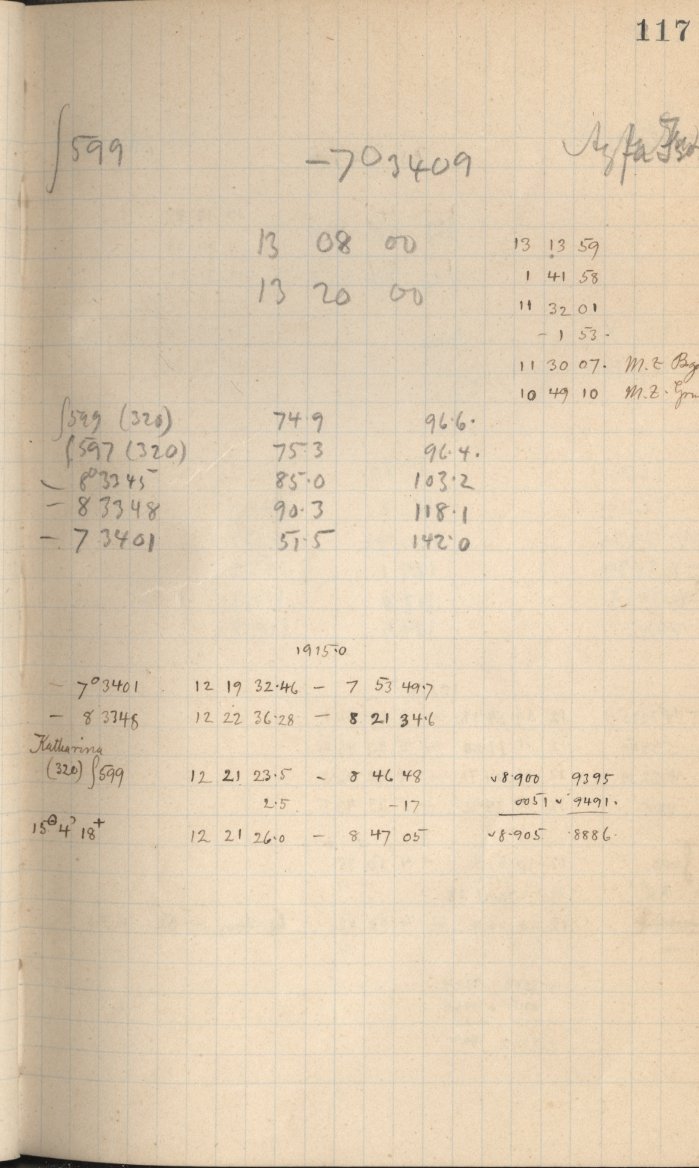 117
∫599 -7° 3409 Agfa
13 08 00
13 20 00
13 13 59
1 41 58
11 32 01
- 1 53.
11 30 07. M.Z.
10 49 10 M.Z.
∫599 (320) 74.9 96.6.
∫597 (320) 75.3 96.4.
- 8° 3345 85.0 103.2
- 8 3348 90.3 118.1
- 7 3401 51.5 142.0
1915.0
- 7° 3401 12 19 32.46 - 7 53 49.7
- 8 3348 12 22 36.28 - 8 21 34.6
Katharina
(320) ∫599 12 21 23.5 - 8 46 48 v8.900 9395
2.5 -17 0051 v 9491.
12 21 26.0 - 8 47 05 v8.905 .8886